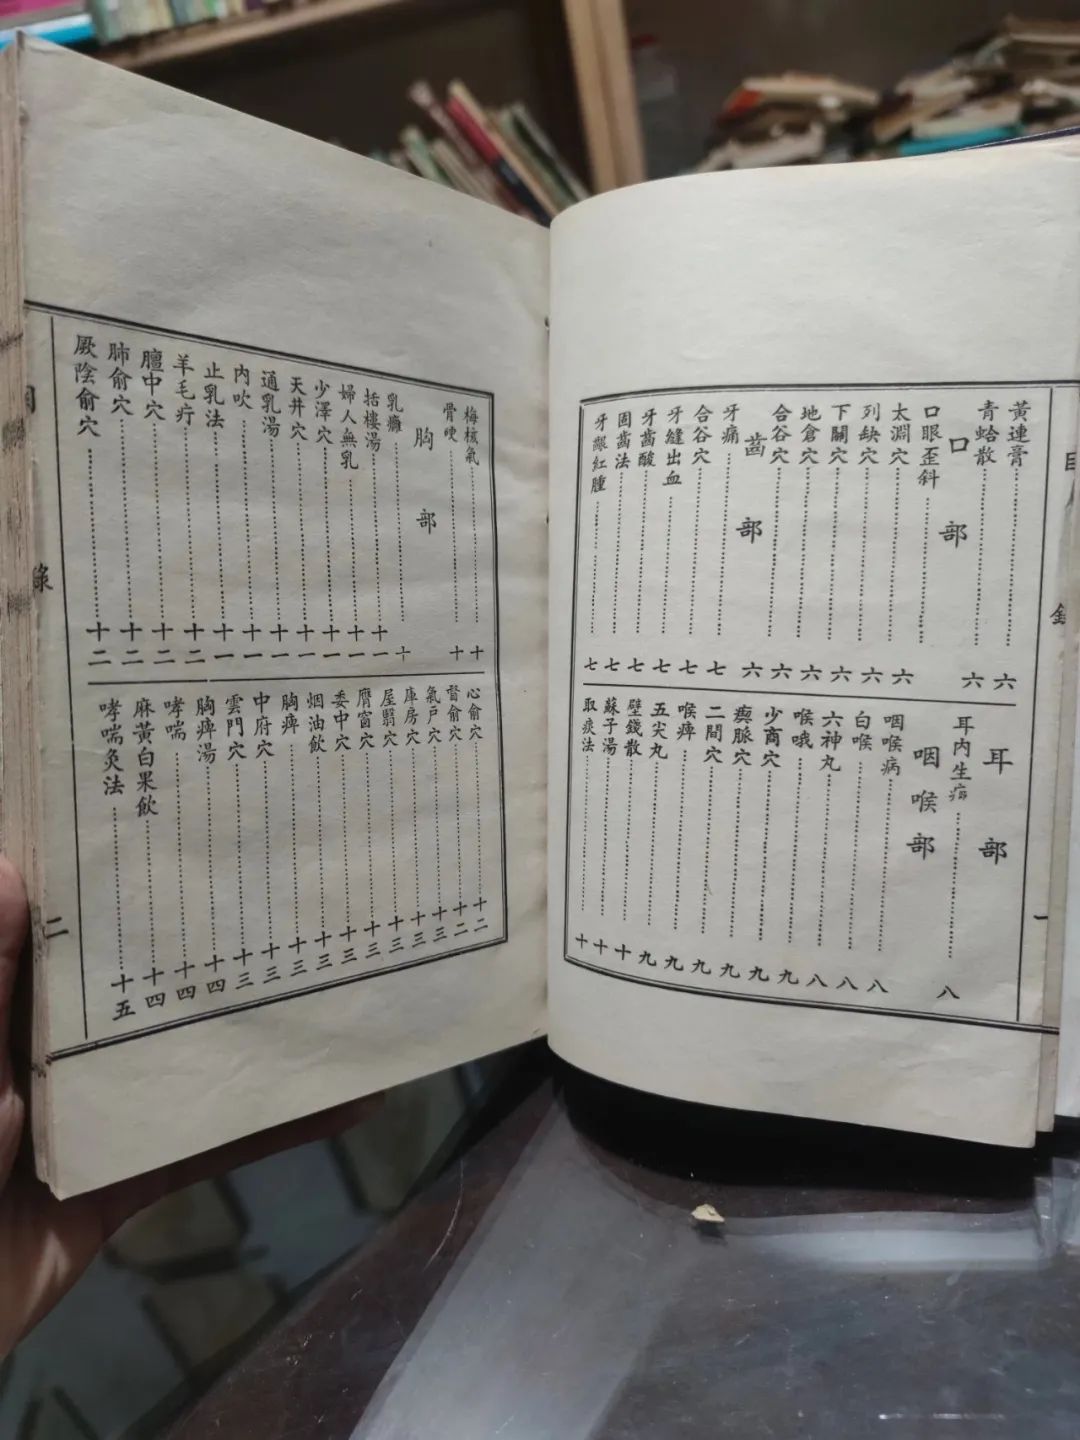 目錄
一
黃連膏 六
青蛤散 六
口部
口眼歪斜 六
太淵穴 六
列缺穴 六
下關穴 六
地倉穴 六
合谷穴 六
齒部
牙痛 七
合谷穴 七
牙縫出血 七
牙齒酸 七
固齒法 七
牙齦紅腫 七
耳部
耳內生疳 八
咽喉部
咽喉病 八
白喉 八
六神丸 八
喉哦 九
少商穴 九
瘈脈穴 九
二間穴 九
喉痺 九
五尖丸 九
壁錢散 十
蘇子湯 十
取痰法 十
梅核氣 十
骨哽 十
胸部
乳癰 十
括樓湯 十一
婦人無乳 十一
少澤穴 十一
天井穴 十一
通乳湯 十一
內吹 十一
止乳法 十一
羊毛疔 十二
膻中穴 十二
肺俞穴 十二
厥陰俞穴 十二
心俞穴 十二
督俞穴 十二
氣戶穴 十三
庫房穴 十三
屋翳穴 十三
膺窗穴 十三
委中穴 十三
烟油飲 十三
胸痺 十三
中府穴 十三
雲門穴 十三
胸痺湯 十四
哮喘 十四
麻黃白果飲 十四
哮喘灸法 十五
目錄
二